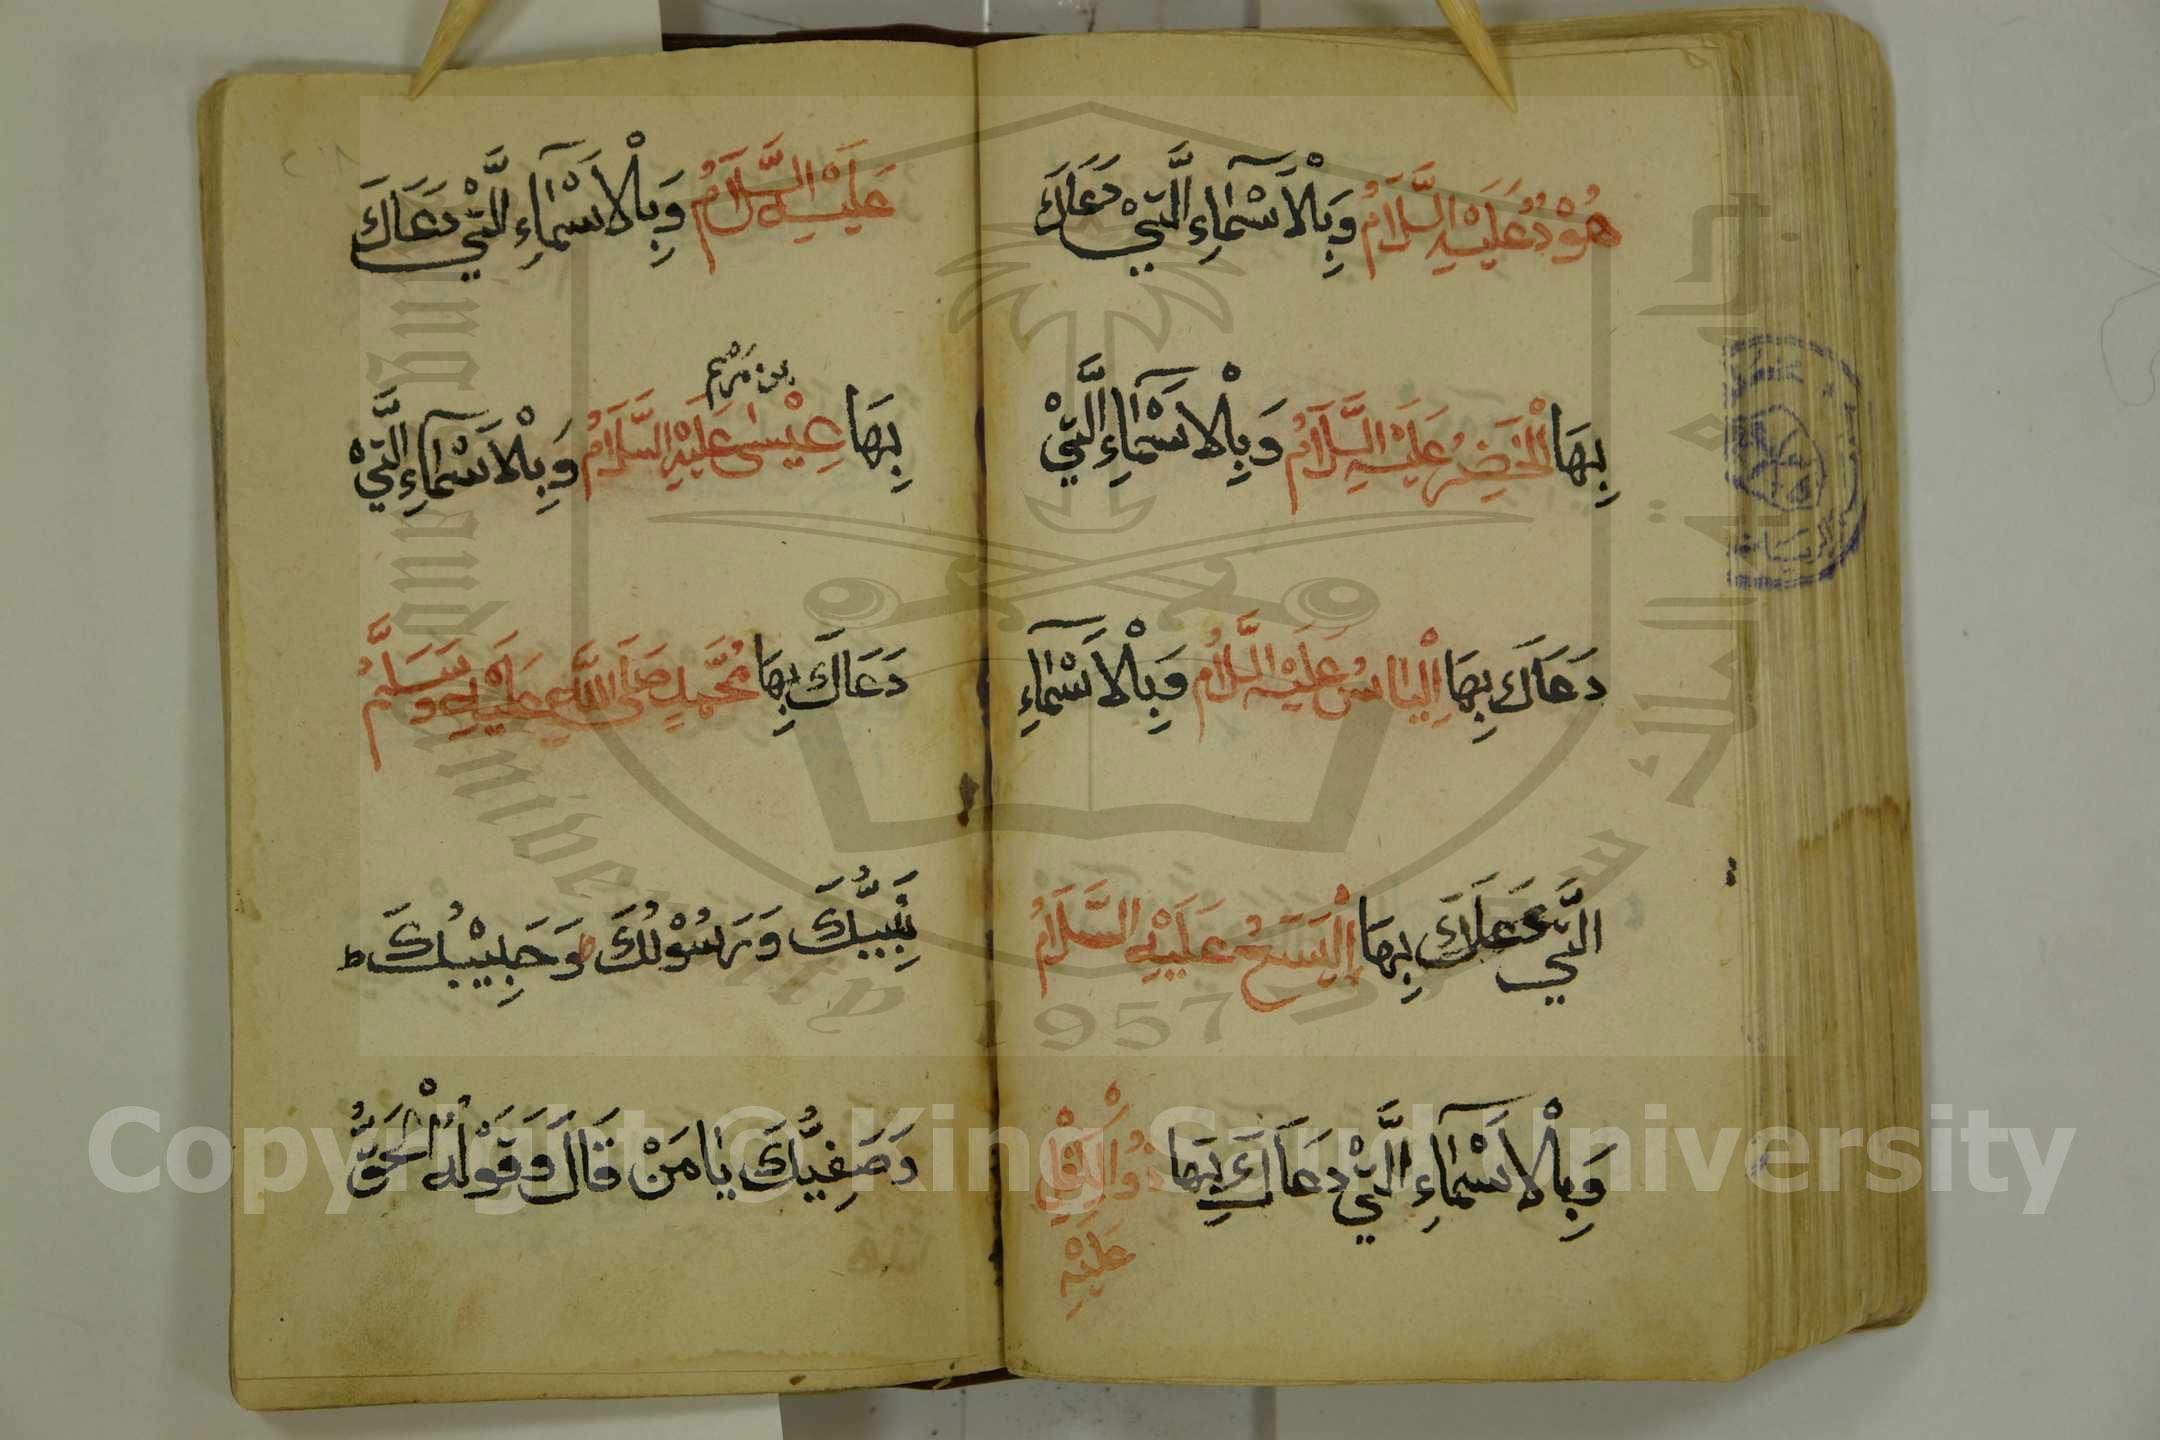 هُوْدُ عَلَيْهِ السَّلَامُ وَبِالْاَسْمَآءِ الَّتِيْ دَعَاكَ
بِهَا الْخَضِرُ عَلَيْهِ السَّلَامُ وَبِالْاَسْمَآءِ الَّتِيْ
دَعَاكَ بِهَا اِلْيَاسُ عَلَيْهِ السَّلَامُ وَبِالْاَسْمَآءِ
الَّتِيْ دَعَاكَ بِهَا اِلْيَسَعُ عَلَيْهِ السَّلَامُ
وَبِالْاَسْمَآءِ الَّتِيْ دَعَاكَ بِهَا ذُوالْكِفْلِ
عَلَيْهِ
عَلَيْهِ السَّلَامُ وَبِالْاَسْمَآءِ الَّتِيْ دَعَاكَ
بن مريم
بِهَا عِيْسٰى عَلَيْهِ السَّلَامُ وَبِالْاَسْمَآءِ الَّتِيْ
دَعَاكَ بِهَا مُحَمَّدٍ صَلَّى اللّٰهِ عَلَيْهِ وَسَلَّمُ
نَبِيُّكَ وَرَسُوْلُكَ وَحَبِيْبُكَ ط
وَصَفِيُّكَ يَا مَنْ قَالَ وَقَوْلُهُ الْحَقُّ
Copyright © King Saud University
1957